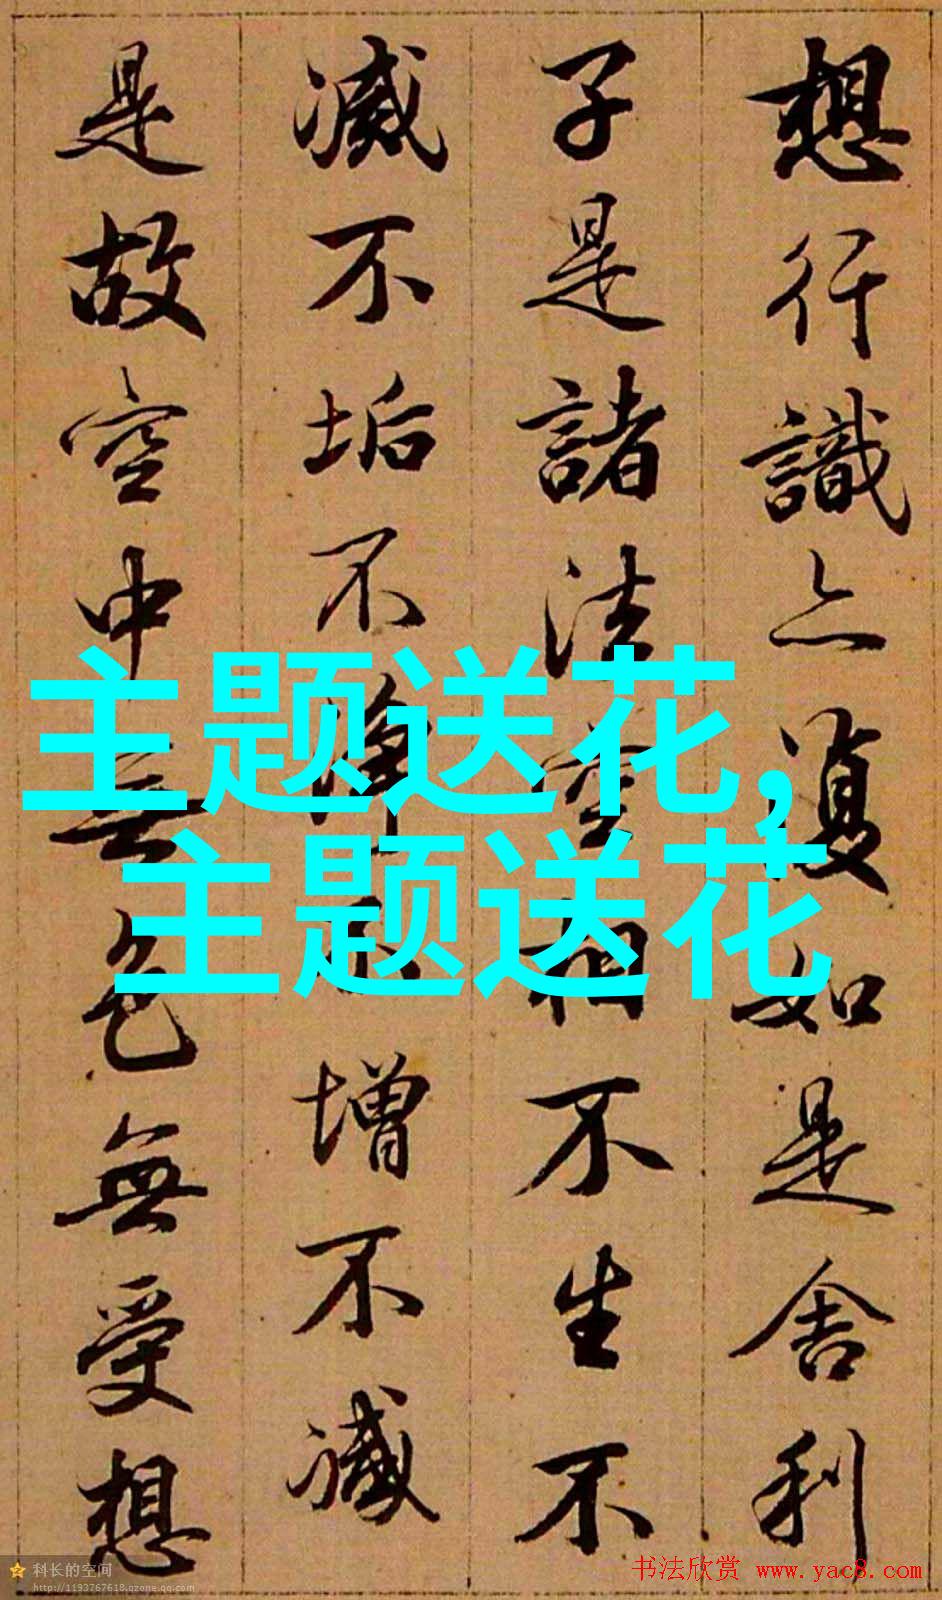 想行識亦復如是舍利
子是諸法空相不生不
滅不垢不淨不增不減
是故空中無色無受想
主题送花，
主题送花
科长的空间
http://1193767618.qzone.qq.com
书法欣赏 www.yac8.com